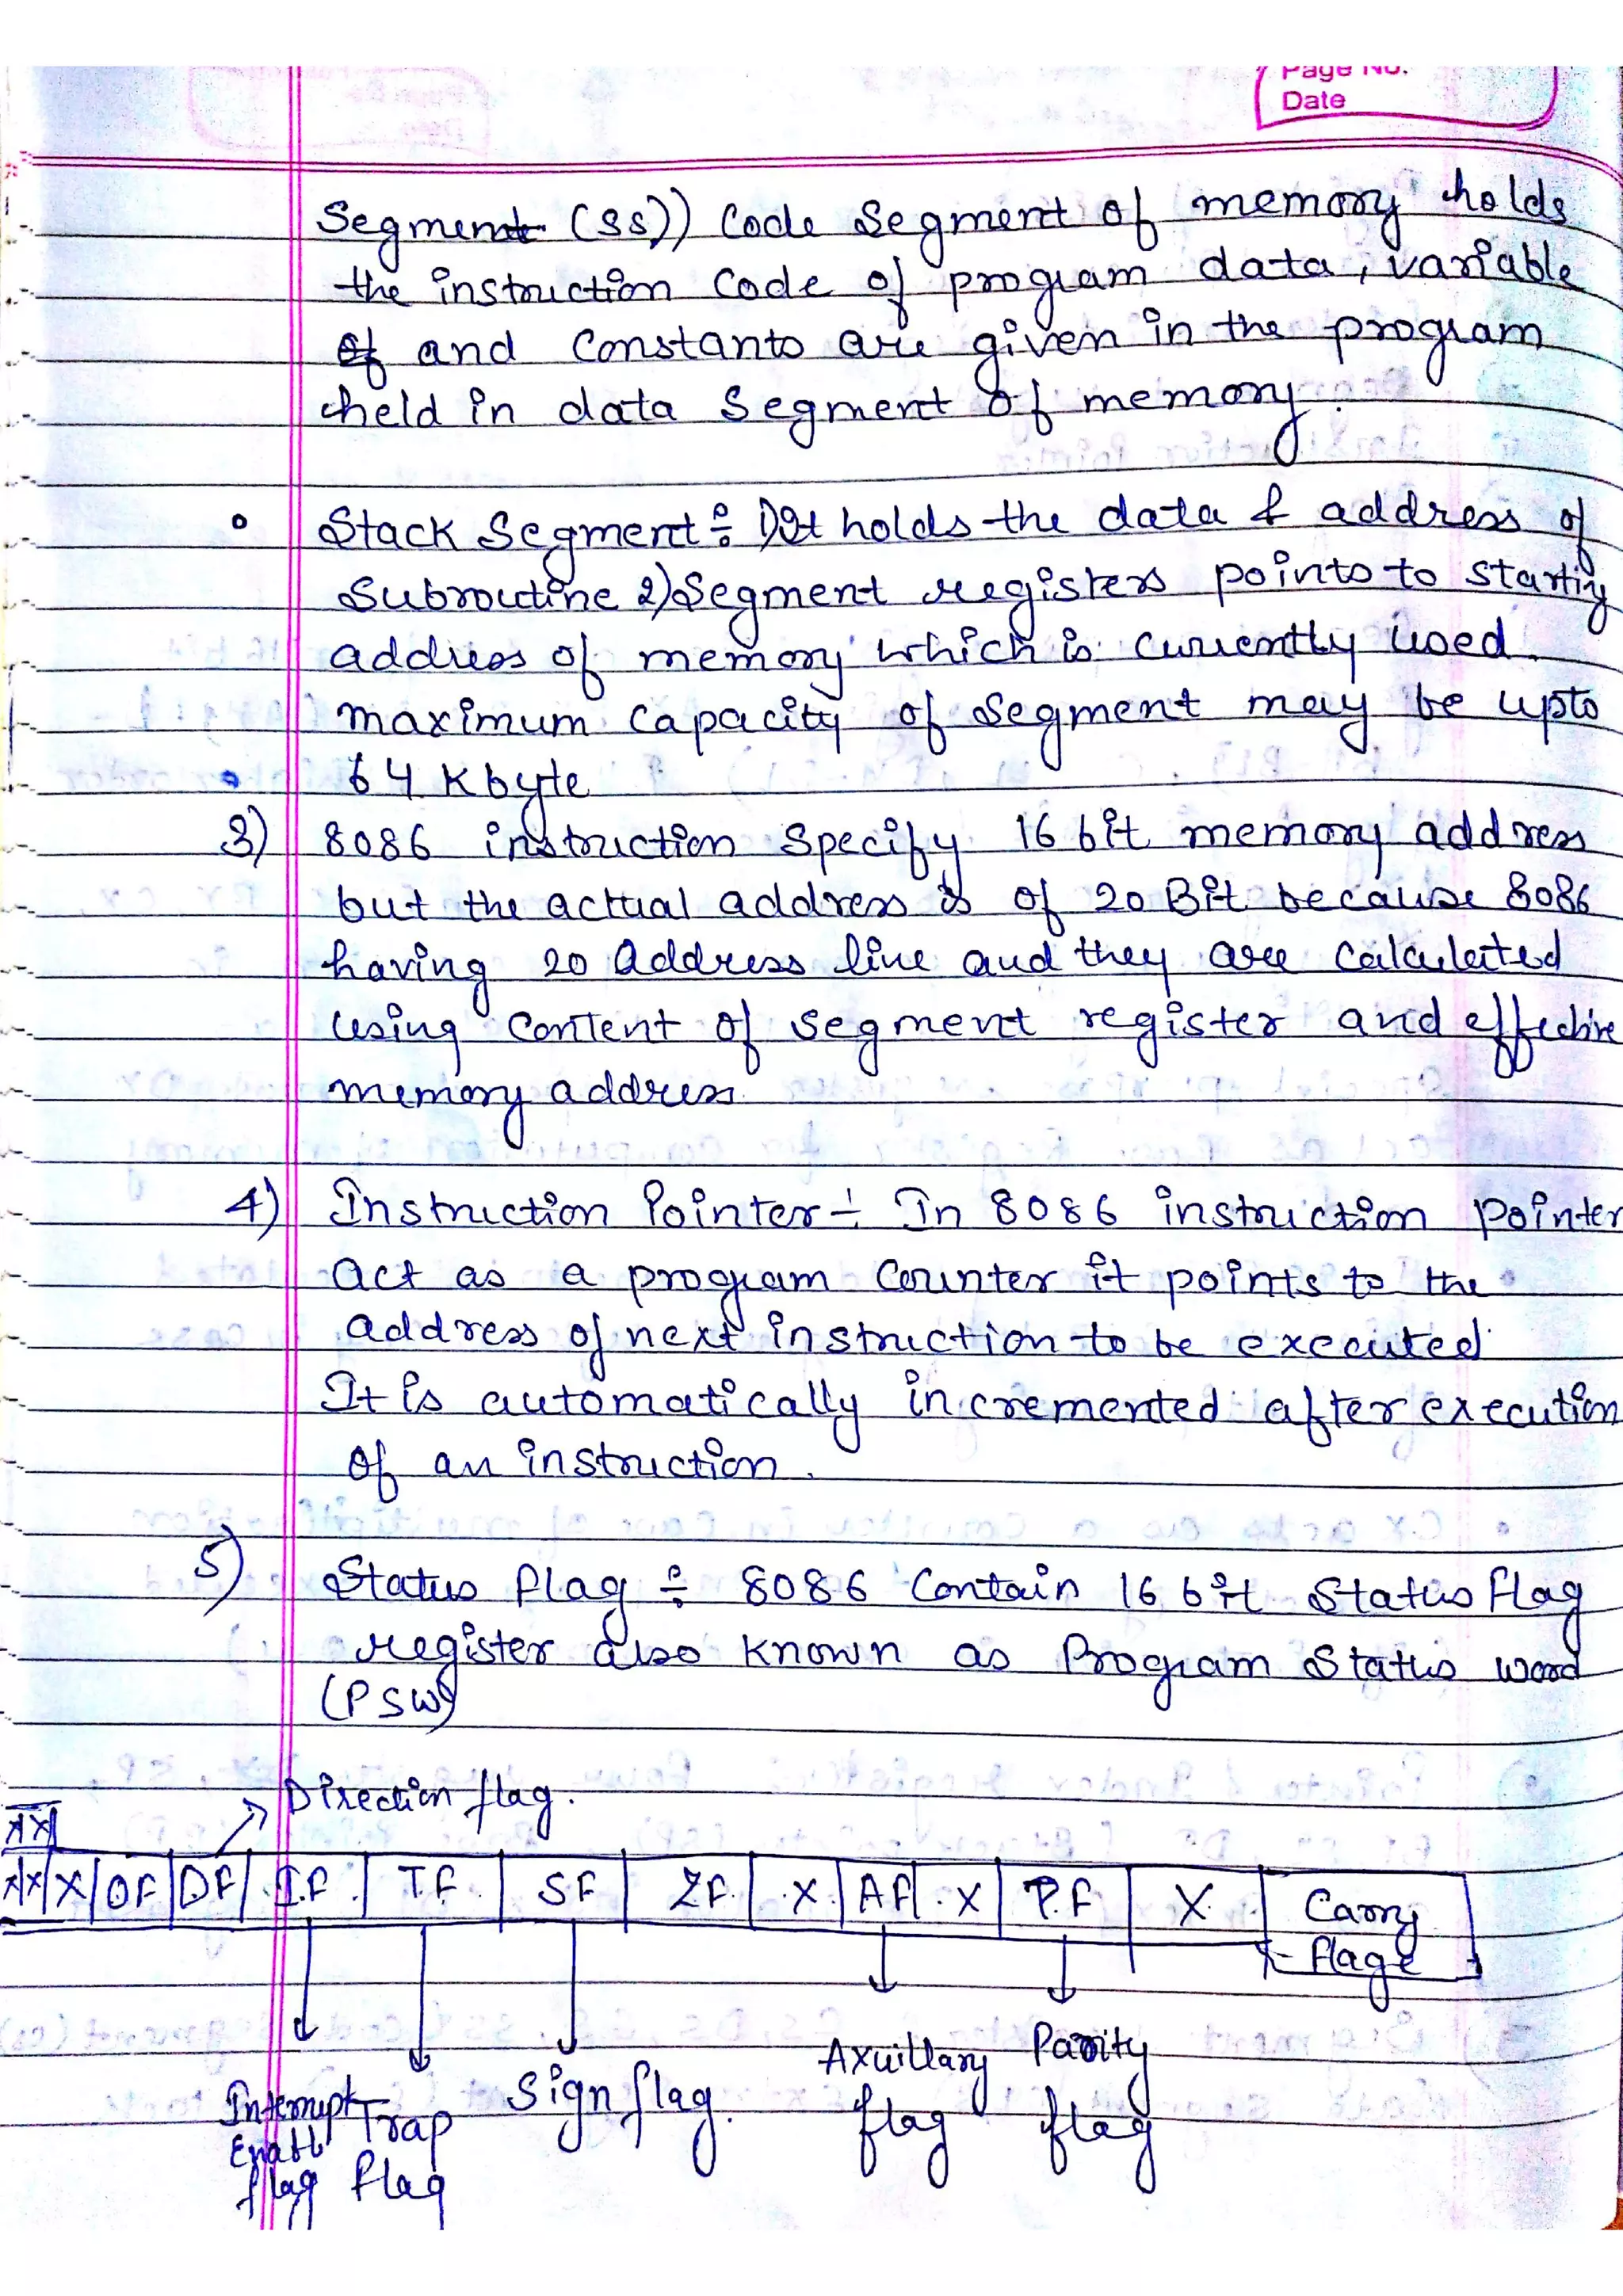 Page No.
Date
Segment (SS)) Code Segment of memory holds
the instruction Code of program data, variable
and Constants are given in the program
held in data Segment of memory.
Stack Segment÷ 1) It holds the data & address of
Subroutine 2) Segment registers points to starting
address of memory which is currently used.
maximum capacity of Segment may be upto
64 K byte
3) 8086 instruction Specify 16 bit memory address
but the actual address is of 20 Bit because 8086
having 20 address line and they are Calculated
using Content of segment register and effective
memory address.
4) Instruction Pointer ÷ In 8086 instruction pointer
act as a program Counter it points to the
address of next instruction to be executed
It is automatically incremented after execution
of an instruction.
5) Status flag ÷ 8086 Contain 16 bit Status flag
register also known as Program Status word
(PSW)
Direction flag.
XX
XX X OF DF I.F. T.F. SF Z.F. X. AF .X P.F X. Carry
flage
Interrupt Trap Sign flag. Axuillary Parity
Enabl flag flag flag
flag